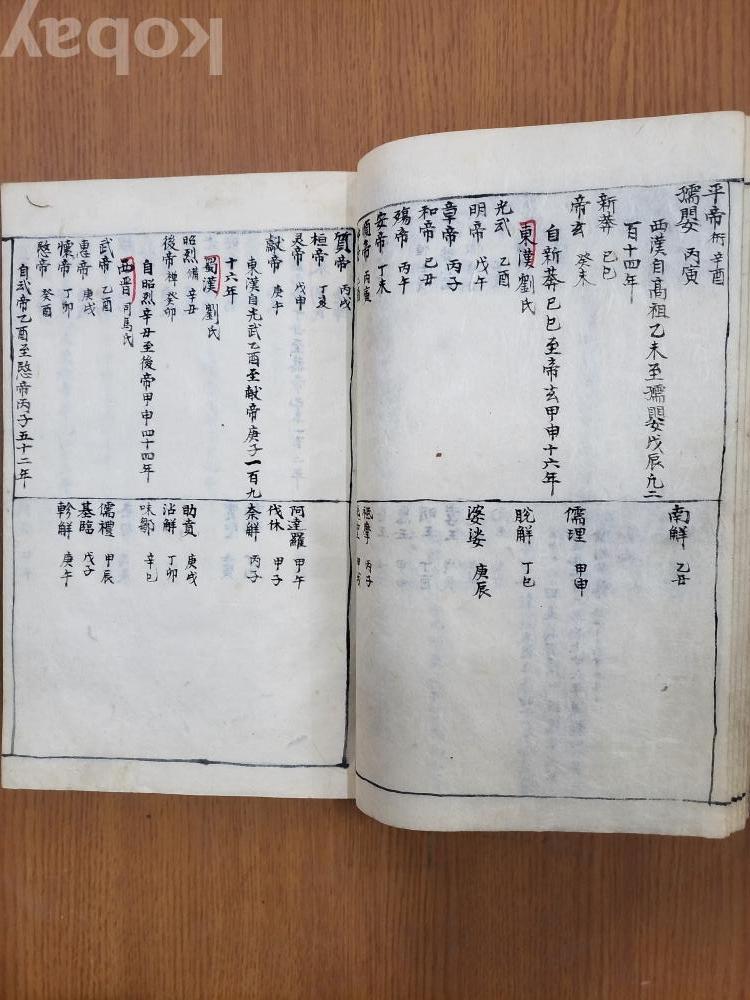 kobay
平帝 衎 辛酉
孺嬰 丙寅
西漢自高祖乙未至孺嬰戊辰凡二
百十四年
新莽 己巳
帝玄 癸未
自新莽己巳至帝玄甲申十六年
東漢 劉氏
光武 乙酉
明帝 戊午
章帝 丙子
和帝 己丑
殤帝 丙午
安帝 丁未
順帝 丙寅
南解 乙丑
儒理 甲申
脫解 丁巳
婆娑 庚辰
祗摩 丙子
質帝 丙戌
桓帝 丁亥
灵帝 戊申
献帝 庚午
東漢自光武乙酉至献帝庚子一百九
十六年
蜀漢 劉氏
昭烈 備 辛丑
後帝 禅 癸卯
自昭烈辛丑至後帝甲申四十四年
西晋 司馬氏
武帝 乙酉
惠帝 庚戌
懷帝 丁卯
愍帝 癸酉
自武帝乙酉至愍帝丙子五十二年
阿達羅 甲午
伐休 甲子
奈解 丙子
助賁 庚戌
沾解 丁卯
味鄒 辛巳
儒禮 甲辰
基臨 戊子
軫解 庚午